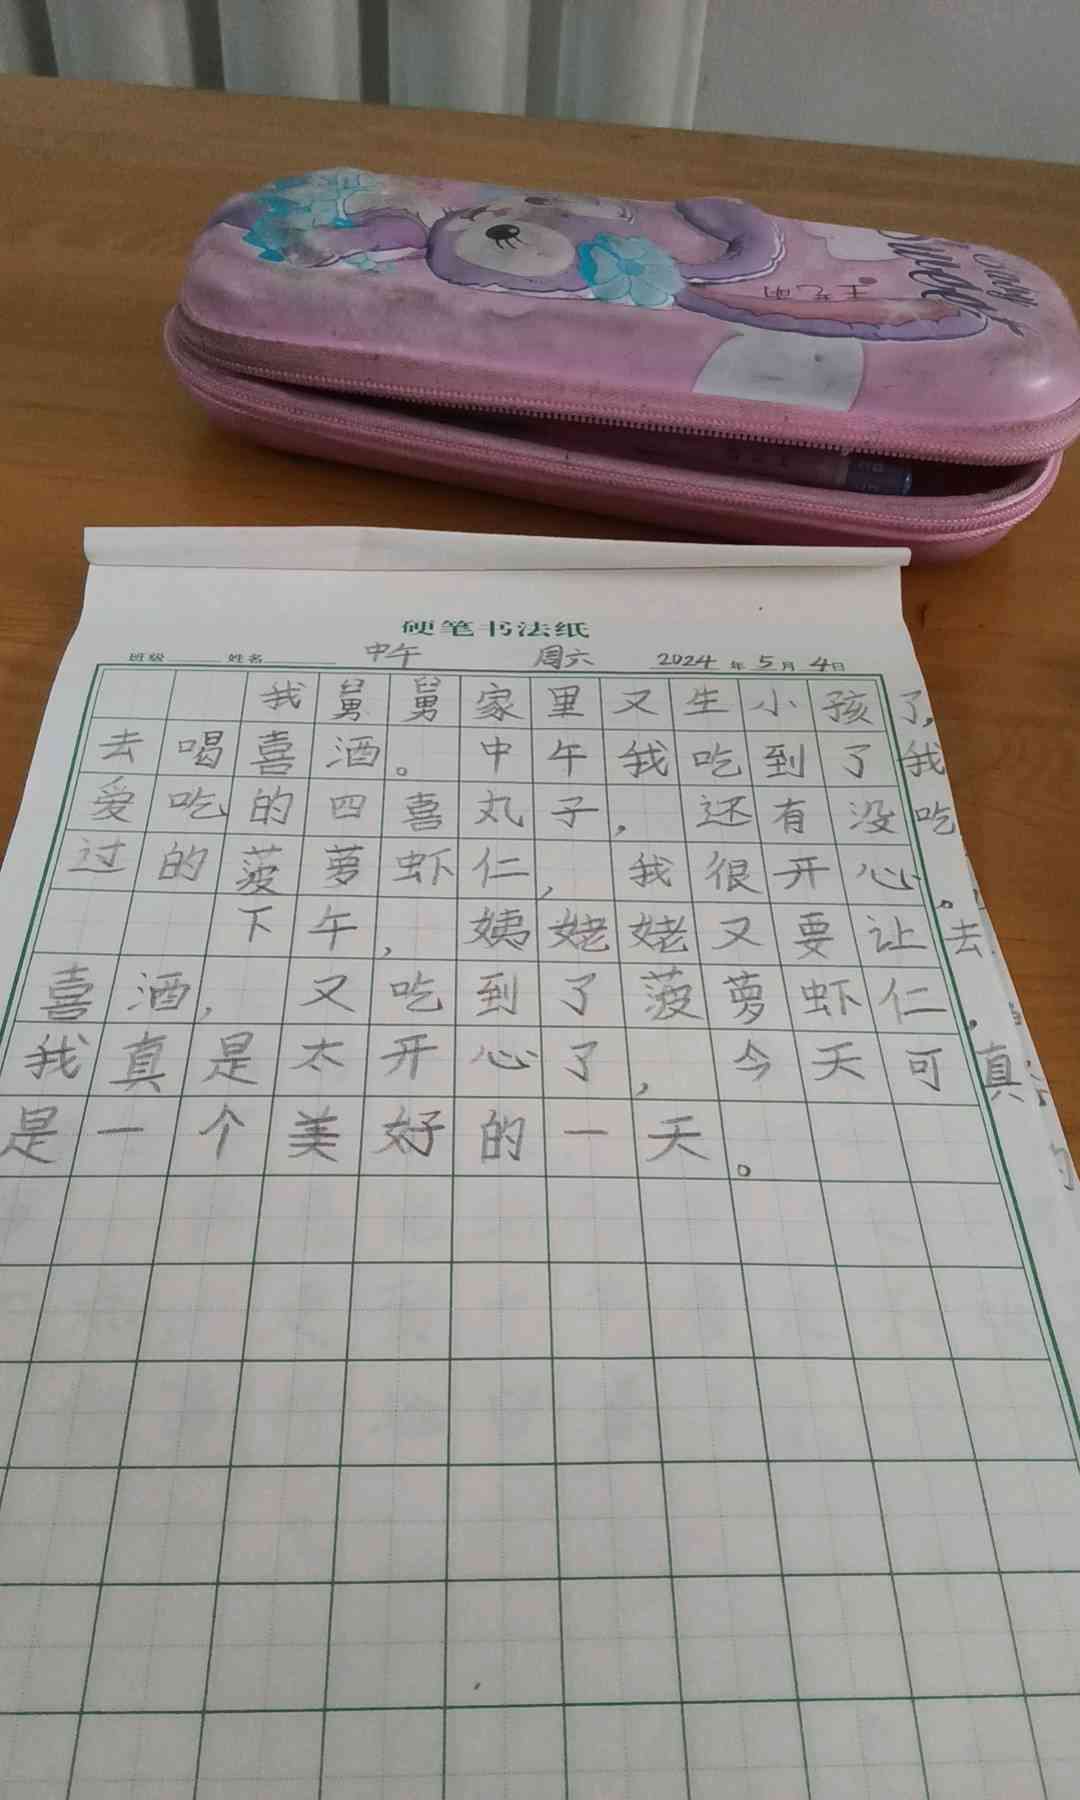 Sweet
硬笔书法纸
班级 姓名 中午 周六 2024年5月4日
我舅舅家里又生小孩了,
去喝喜酒。中午我吃到了我
爱吃的四喜丸子,还有没吃
过的菠萝虾仁,我很开心。
下午,姨姥姥又要让去
喜酒,又吃到了菠萝虾仁,
我真是太开心了,今天可真
是一个美好的一天。